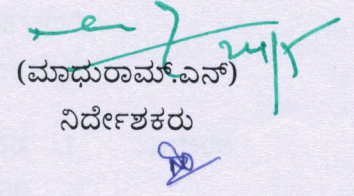 24/5
(ಮಾಧುರಾಮ್.ಎನ್)
ನಿರ್ದೇಶಕರು